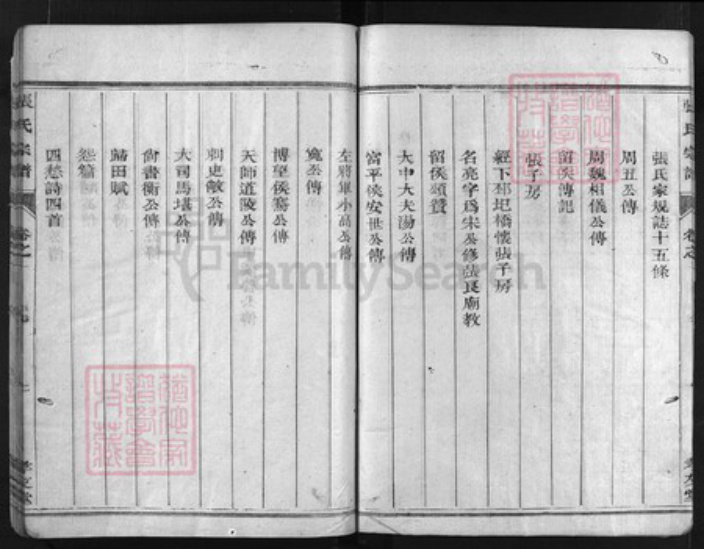 張氏宗譜
卷之
張氏家規誌十五條
周丑公傳
周魏相儀公傳
留侯傳記
張子房
經下邳圯橋懷張子房
名亮字爲宋公修張良廟教
留侯頌贊
大中大夫湯公傳
富平侯安世公傳
左將軍小高公傳
寬公傳
博望侯騫公傳
天師道陵公傳
刺史敞公傳
大司馬堪公傳
尚書衡公傳
歸田賦
怨篇
四愁詩四首
張氏宗譜
卷之
孝友堂
FamilySearch